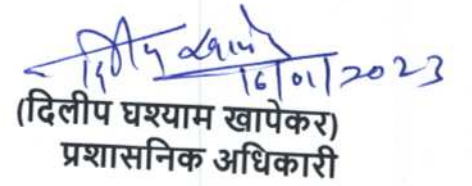 16/01/2023
(दिलीप घश्याम खापेकर)
प्रशासनिक अधिकारी